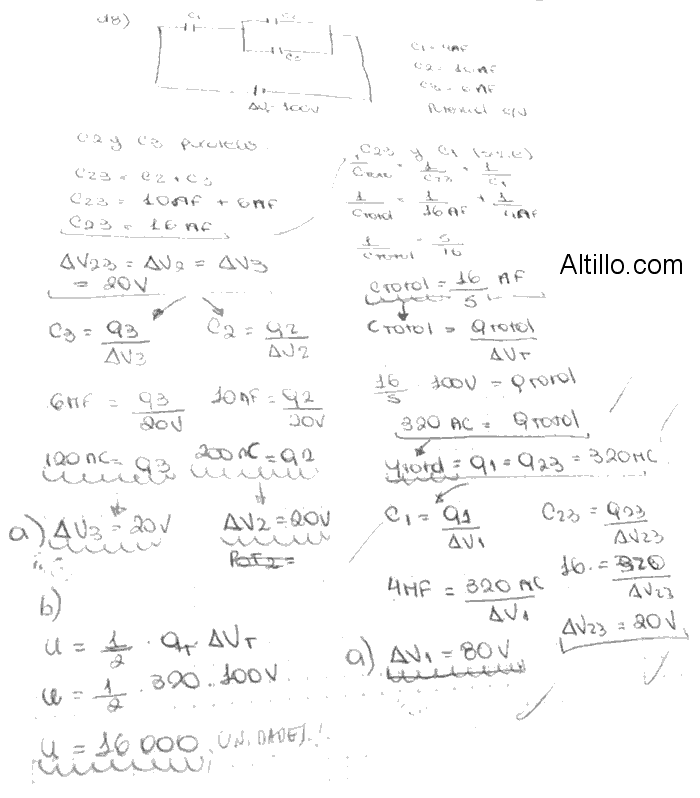 d8)
C1
C3
ΔV = 100V
C1 = 4µF
C2 = 10µF
C3 = 6µF
Potencial c/u
C2 y C3 paralelo
C23 = C2 + C3
C23 = 10µF + 6µF
C23 = 16µF
ΔV23 = ΔV2 = ΔV3
= 20V
C3 = q3/ΔV3
C2 = q2/ΔV2
6µF = q3/20V
10µF = q2/20V
120µC = q3
200µC = q2
a) ΔV3 = 20V
ΔV2 = 20V
b)
u = 1/2 · qT · ΔVT
u = 1/2 · 320 · 100V
u = 16000 UNIDADES!
C23 y C1 (serie)
1/Ctotal = 1/C23 + 1/C1
1/Ctotal = 1/16µF + 1/4µF
1/Ctotal = 5/16
Ctotal = 16/5 µF
Ctotal = qtotal/ΔVT
16/5 · 100V = qtotal
320µC = qtotal
qtotal = q1 = q23 = 320µC
C1 = q1/ΔV1
C23 = q23/ΔV23
4µF = 320µC/ΔV1
16 = 320/ΔV23
a) ΔV1 = 80V
ΔV23 = 20V
Altillo.com